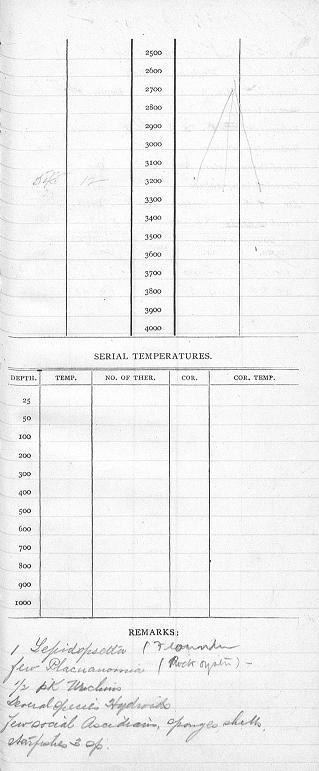 2500
2600
2700
2800
2900
3000
3100
3200
3300
3400
3500
3600
3700
3800
3900
4000
SERIAL TEMPERATURES.
DEPTH. TEMP. NO. OF THER. COR. COR. TEMP.
25
50
100
200
300
400
500
600
700
800
900
1000
REMARKS:
1 Lepidopsetta (Flounder
few Placunanomia (Rock oyster) -
1/2 pk Urchins
Several species Hydroids
few social Ascidians, sponges shells,
starfishes 3 sp.